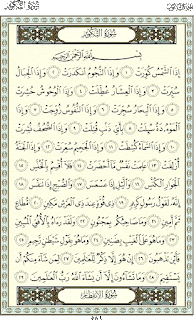 سُورَةُ التَّكْوِيرِ
سُورَةُ التَّكْوِيرِ
بِسْمِ اللَّهِ الرَّحْمَٰنِ الرَّحِيمِ
إِذَا الشَّمْسُ كُوِّرَتْ ١ وَإِذَا النُّجُومُ انكَدَرَتْ ٢ وَإِذَا الْجِبَالُ
سُيِّرَتْ ٣ وَإِذَا الْعِشَارُ عُطِّلَتْ ٤ وَإِذَا الْوُحُوشُ حُشِرَتْ
٥ وَإِذَا الْبِحَارُ سُجِّرَتْ ٦ وَإِذَا النُّفُوسُ زُوِّجَتْ ٧ وَإِذَا
الْمَوْءُودَةُ سُئِلَتْ ٨ بِأَيِّ ذَنبٍ قُتِلَتْ ٩ وَإِذَا الصُّحُفُ نُشِرَتْ
١٠ وَإِذَا السَّمَاءُ كُشِطَتْ ١١ وَإِذَا الْجَحِيمُ سُعِّرَتْ ١٢ وَإِذَا الْجَنَّةُ
أُزْلِفَتْ ١٣ عَلِمَتْ نَفْسٌ مَّا أَحْضَرَتْ ١٤ فَلَا أُقْسِمُ بِالْخُنَّسِ
١٥ الْجَوَارِ الْكُنَّسِ ١٦ وَاللَّيْلِ إِذَا عَسْعَسَ ١٧ وَالصُّبْحِ إِذَا تَنَفَّسَ
١٨ إِنَّهُ لَقَوْلُ رَسُولٍ كَرِيمٍ ١٩ ذِي قُوَّةٍ عِندَ ذِي الْعَرْشِ مَكِينٍ ٢٠ مُّطَاعٍ
ثَمَّ أَمِينٍ ٢١ وَمَا صَاحِبُكُم بِمَجْنُونٍ ٢٢ وَلَقَدْ رَآهُ بِالْأُفُقِ الْمُبِينِ
٢٣ وَمَا هُوَ عَلَى الْغَيْبِ بِضَنِينٍ ٢٤ وَمَا هُوَ بِقَوْلِ شَيْطَانٍ رَّجِيمٍ ٢٥
فَأَيْنَ تَذْهَبُونَ ٢٦ إِنْ هُوَ إِلَّا ذِكْرٌ لِّلْعَالَمِينَ ٢٧ لِمَن شَاءَ مِنكُمْ أَن
يَسْتَقِيمَ ٢٨ وَمَا تَشَاءُونَ إِلَّا أَن يَشَاءَ اللَّهُ رَبُّ الْعَالَمِينَ ٢٩
سُورَةُ الِانفِطَارِ
٥٨٦